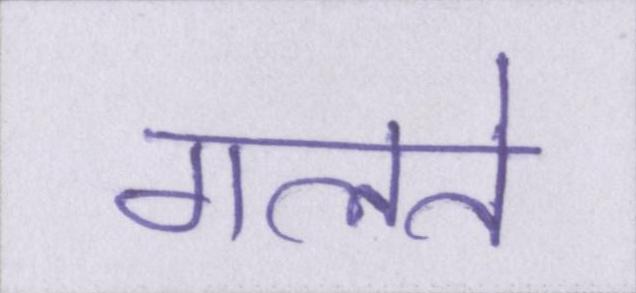 गलते